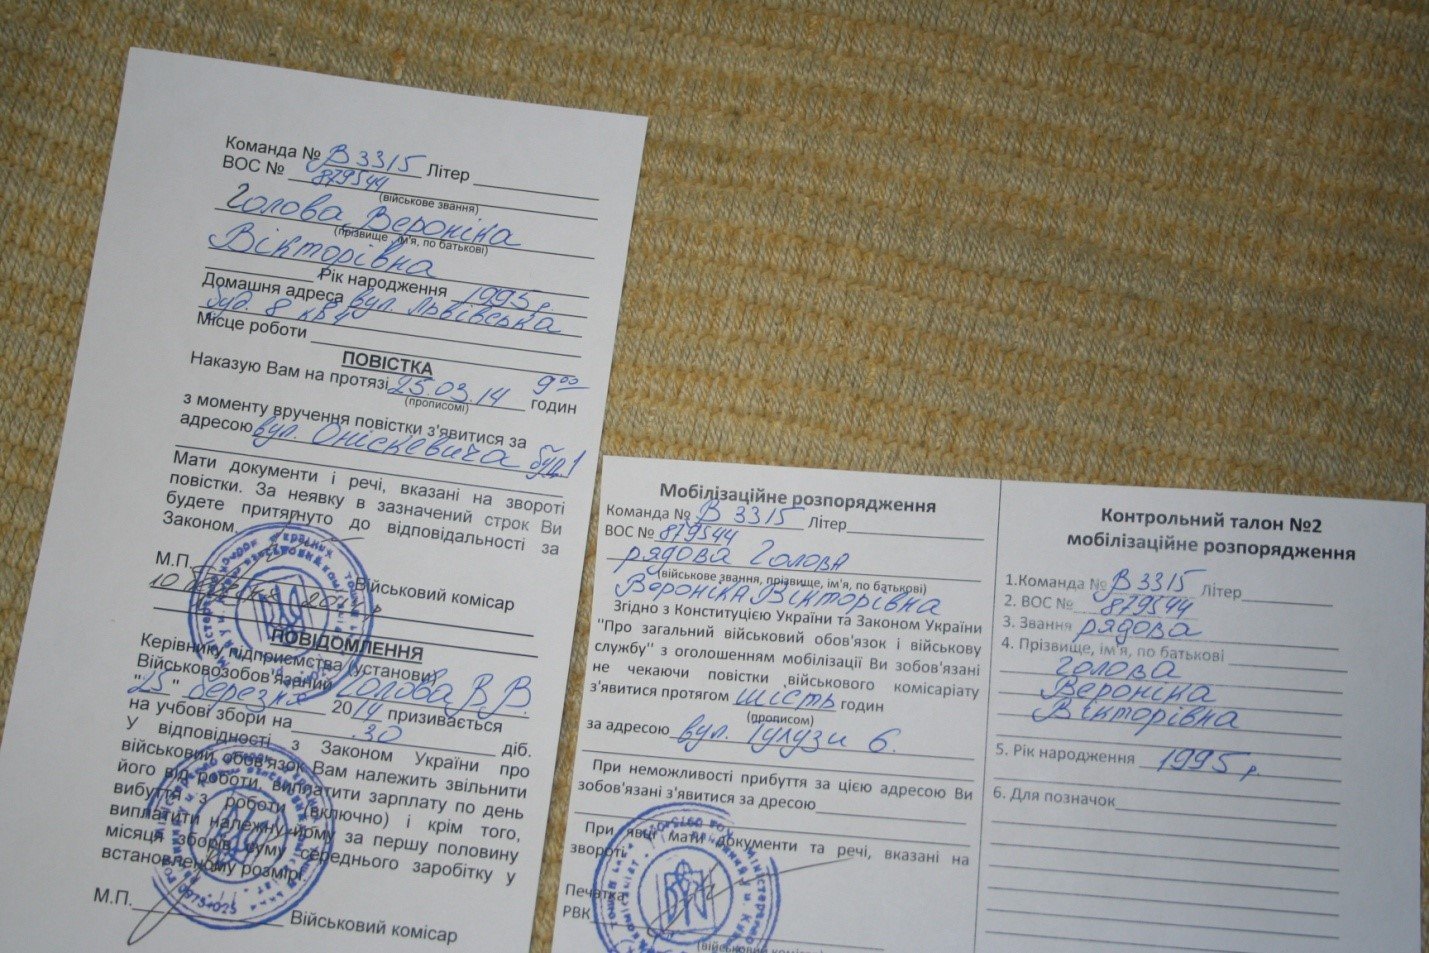 Команда № В 3315 Літер
ВОС № 879544
(військове звання)
Голова Вероніка
(прізвище, ім'я, по батькові)
Вікторівна
Рік народження 1995 р.
Домашня адреса вул. Львівська
буд. 8 кв 4
Місце роботи
ПОВІСТКА
Наказую Вам на протязі 25.03.14 9 00 годин
(прописомі)
з моменту вручення повістки з'явитися за
адресою вул. Оніскевича буд. 1
Мати документи і речі, вказані на звороті
повістки. За неявку в зазначений строк Ви
будете притягнуто до відповідальності за
Законом.
М.П. Військовий комісар
10
ПОВІДОМЛЕННЯ
Керівнику підприємства (установи)
Військовозобов'язаний Голова В.В.
"25" березня 2014 призивається
на учбові збори на 30 діб.
У відповідності з Законом України про
військовий обов'язок Вам належить звільнити
його від роботи, виплатити зарплату по день
вибуття з роботи (включно) і крім того,
виплатити належну йому за першу половину
місяця зборів суму середнього заробітку у
встановленому розмірі.
М.П. Військовий комісар
Мобілізаційне розпорядження
Команда № В 3315 Літер
ВОС № 879544
рядова Голова
(військове звання, прізвище, ім'я, по батькові)
Вероніка Вікторівна
Згідно з Конституцією України та Законом України
"Про загальний військовий обов'язок і військову
службу" з оголошенням мобілізації Ви зобов'язані
не чекаючи повістки військового комісаріату
з'явитися протягом шість годин
(прописом)
за адресою вул. Тулузи 6.
При неможливості прибуття за цією адресою Ви
зобов'язані з'явитися за дресою
При явці мати документи та речі, вказані на
звороті
Печатка
РВК
(військовий комісар)
Контрольний талон №2
мобілізаційне розпорядження
1.Команда № В 3315 Літер
2. ВОС № 879544
3. Звання рядова
4. Прізвище, ім'я, по батькові
Голова
Вероніка
Вікторівна
5. Рік народження 1995 р.
6. Для позначок